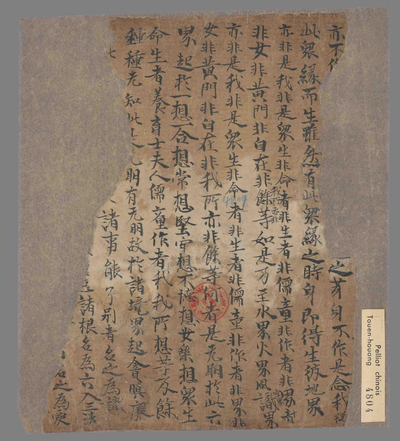 亦不作
之芽亦不作是念我從
此衆緣而生雖然有此衆緣之時即得生彼地界
亦非是我非是衆生非命者非生者非儒童非作者非男者
非女非黃門非自在非我所非餘等如是乃至水界火界風識界
亦非是我非是衆生非命者非生者非儒童非作者非男非
女非黃門非自在非我所亦非餘等何者是无明於此六
界起於一想一合想常想堅牢想不壞想安樂想衆生
命生者養育士夫人儒童作者我我所想等及餘
種種无知此是无明有无明故於諸境界起貪瞋癡
諸事能了別者名之為識
諸根名為六入三法
名之為愛
Pelliot chinois
Touen-houang
4804